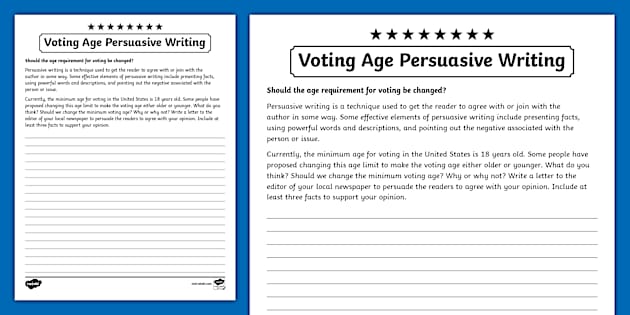 Voting Age Persuasive Writing
Should the age requirement for voting be changed?
Persuasive writing is a technique used to get the reader to agree with or join with the
author in some way. Some effective elements of persuasive writing include presenting facts,
using powerful words and descriptions, and pointing out the negative associated with the
person or issue.
Currently, the minimum age for voting in the United States is 18 years old. Some people have
proposed changing this age limit to make the voting age either older or younger. What do you
think? Should we change the minimum voting age? Why or why not? Write a letter to the
editor of your local newspaper to persuade the readers to agree with your opinion. Include at
least three facts to support your opinion.
twinkl
Voting Age Persuasive Writing
Should the age requirement for voting be changed?
Persuasive writing is a technique used to get the reader to agree with or join with the
author in some way. Some effective elements of persuasive writing include presenting facts,
using powerful words and descriptions, and pointing out the negative associated with the
person or issue.
Currently, the minimum age for voting in the United States is 18 years old. Some people have
proposed changing this age limit to make the voting age either older or younger. What do you
think? Should we change the minimum voting age? Why or why not? Write a letter to the
editor of your local newspaper to persuade the readers to agree with your opinion. Include at
least three facts to support your opinion.